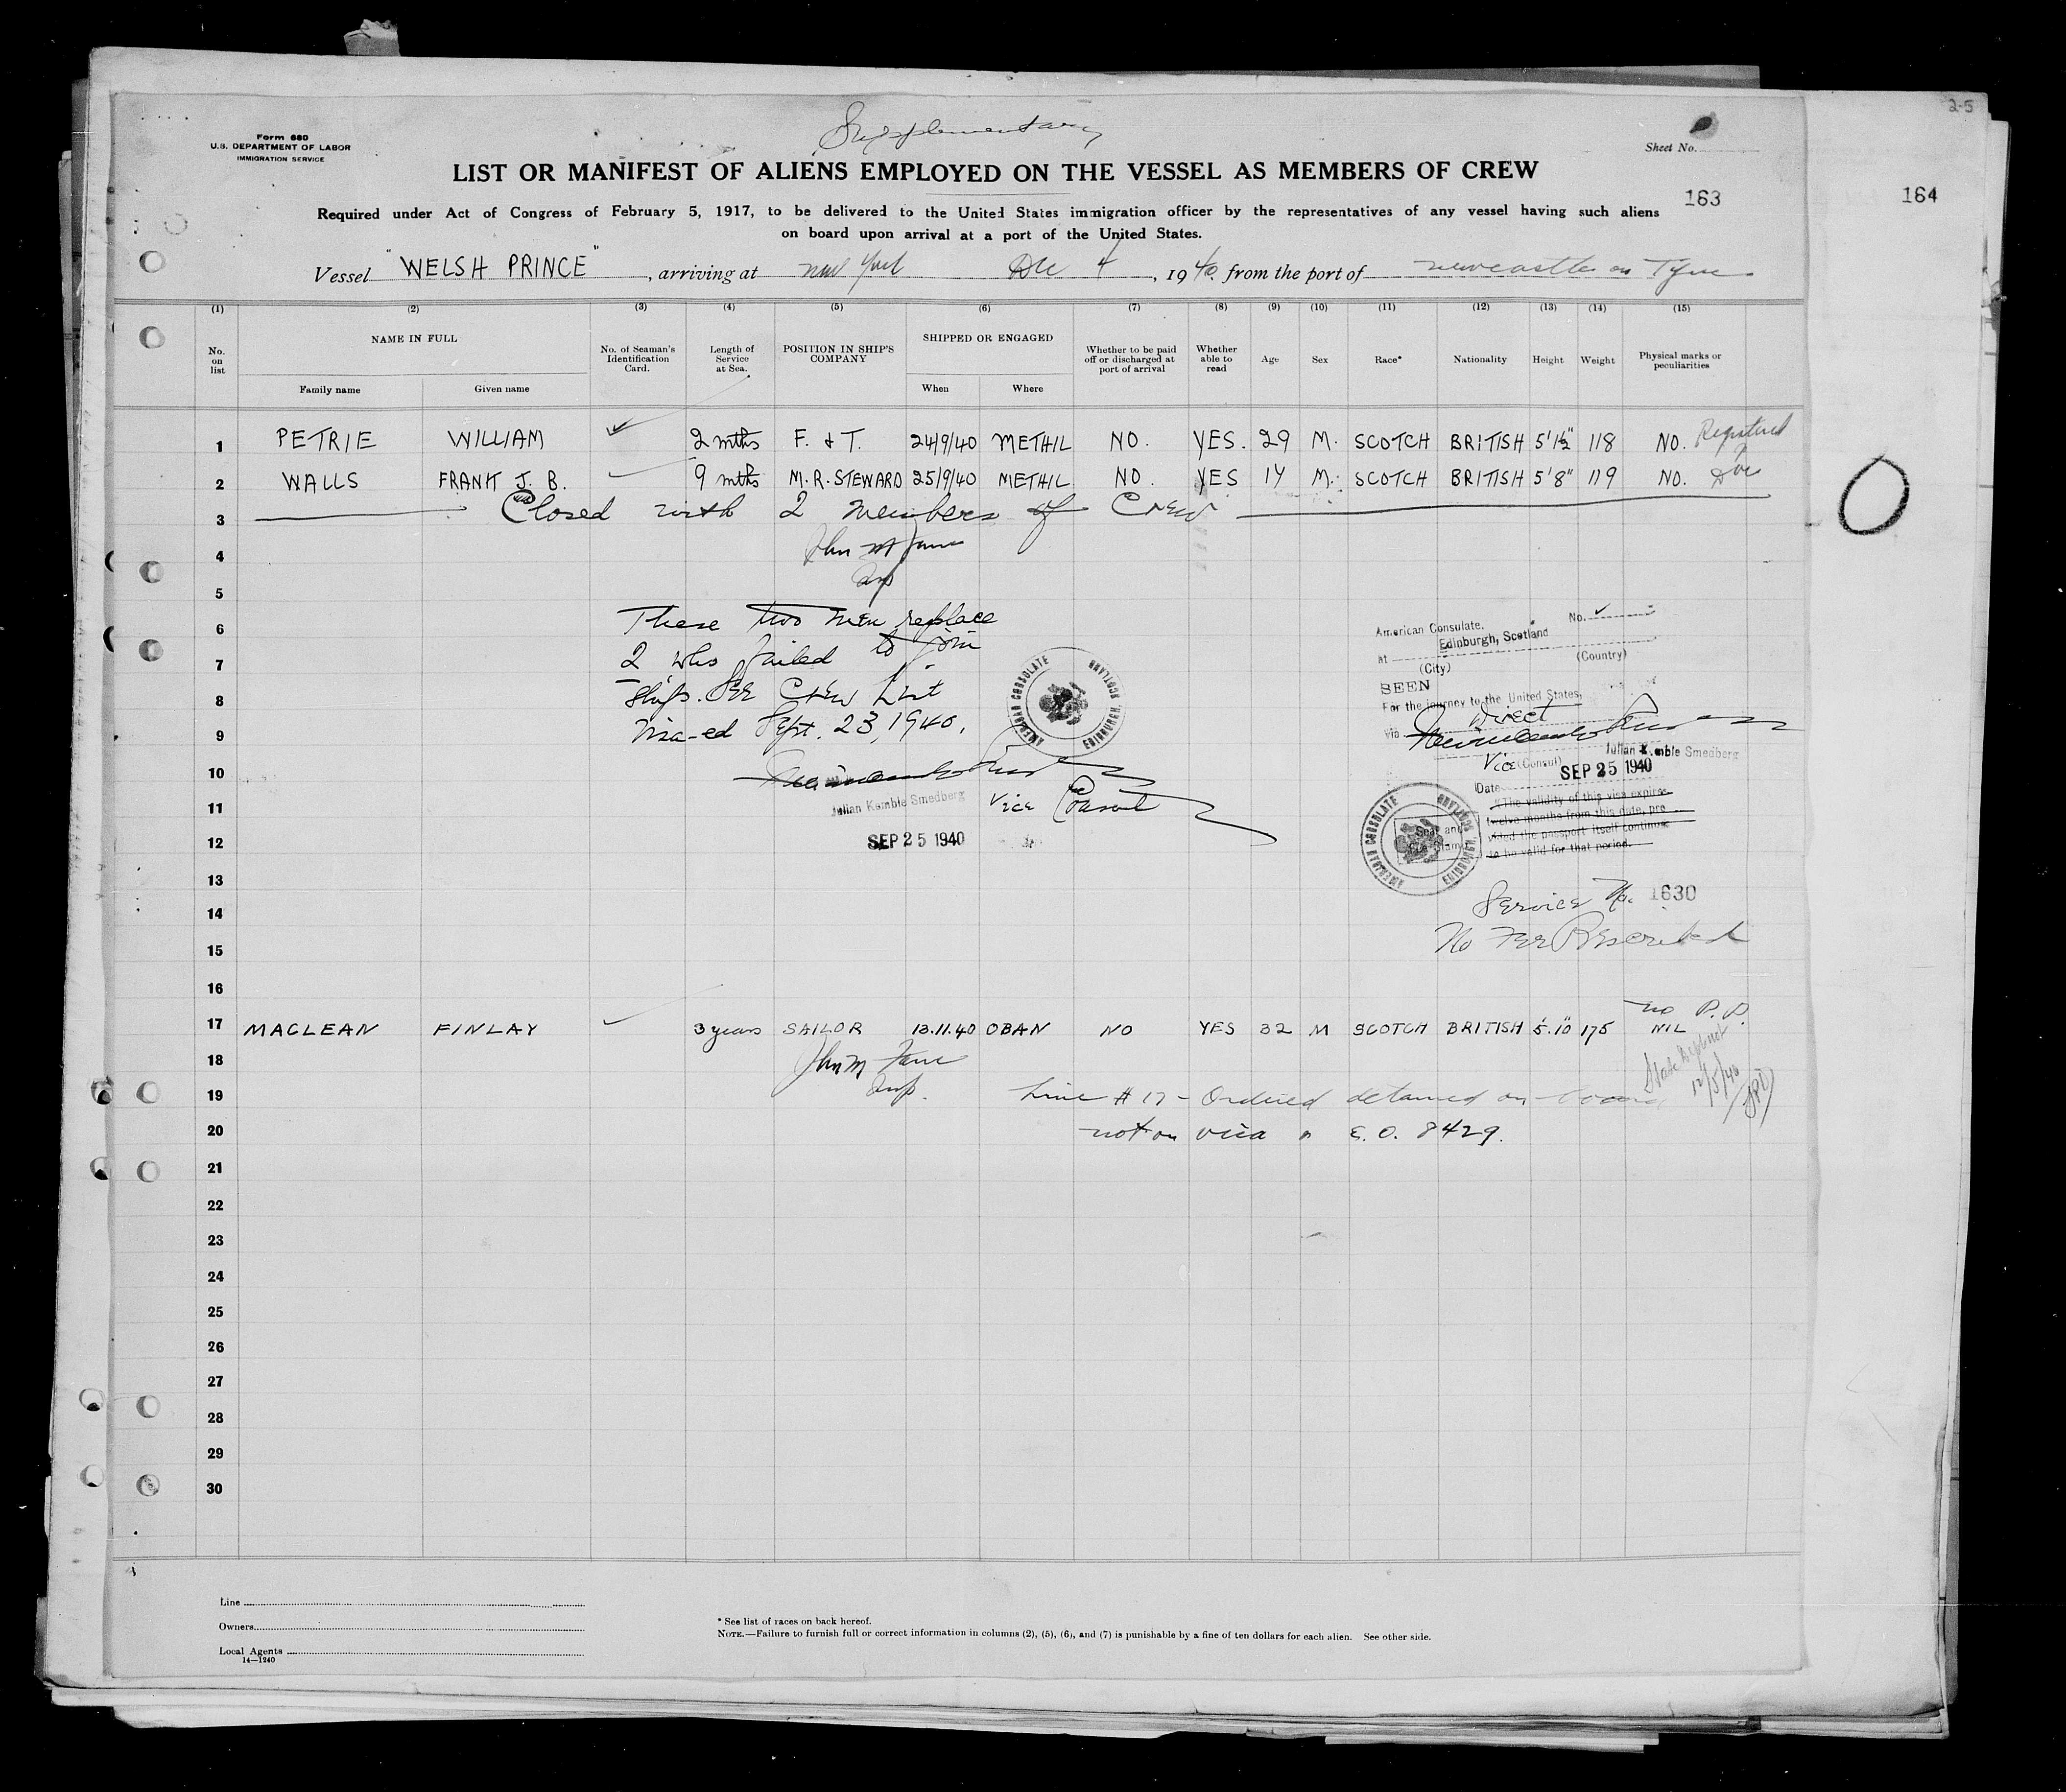 2-5
Supplementary
Form 680
U.S. DEPARTMENT OF LABOR
IMMIGRATION SERVICE
Sheet No.
LIST OR MANIFEST OF ALIENS EMPLOYED ON THE VESSEL AS MEMBERS OF CREW
163
164
Required under Act of Congress of February 5, 1917, to be delivered to the United States immigration officer by the representatives of any vessel having such aliens
on board upon arrival at a port of the United States.
Vessel "WELSH PRINCE", arriving at New York Dec 4, 1940 from the port of Newcastle on Tyne
(1) (2) (3) (4) (5) (6) (7) (8) (9) (10) (11) (12) (13) (14) (15)
No. on list NAME IN FULL Family name Given name No. of Seaman's Identification Card. Length of Service at Sea. POSITION IN SHIP'S COMPANY SHIPPED OR ENGAGED When Where Whether to be paid off or discharged at port of arrival Whether able to read Age Sex Race* Nationality Height Weight Physical marks or peculiarities
1 PETRIE WILLIAM 2 mths F. & T. 24/9/40 METHIL NO. YES. 29 M. SCOTCH BRITISH 5'1½" 118 NO. Registered
2 WALLS FRANK J. B. 9 mths M.R. STEWARD 25/9/40 METHIL NO. YES 17 M. SCOTCH BRITISH 5'8" 119 NO. Do
3 Closed with 2 members of Crew
4
5
6 These two men replace
7 2 who failed to join
8 ship. See Crew List
9 Visa-ed Sept. 23, 1940.
10
Julian Kemble Smedberg
11 Vice Consul
12 SEP 25 1940
AMERICAN CONSULATE EDINBURGH, SCOTLAND
No.
American Consulate.
at Edinburgh, Scotland
(City) (Country)
SEEN
For the journey to the United States,
via Direct
Julian Kemble Smedberg
Vice (Consul)
SEP 25 1940
Date
"The validity of this visa expires
twelve months from this date, pro-
vided the passport itself continues
to be valid for that period.
Seal and
Fee Stamp
AMERICAN CONSULATE EDINBURGH, SCOTLAND
Service No. 1630
No Fee Prescribed
13
14
15
16
no P.P.
17 MACLEAN FINLAY 3 years SAILOR 13.11.40 OBAN NO YES 32 M SCOTCH BRITISH 5'.10" 175 NIL
18 John M
19 Insp. Line # 17 - Ordered detained on board
12/5/40
20 not on visa E.O. 8429.
21
22
23
24
25
26
27
28
29
30
Line
Owners
Local Agents
14—1240
* See list of races on back hereof.
NOTE.—Failure to furnish full or correct information in columns (2), (5), (6), and (7) is punishable by a fine of ten dollars for each alien. See other side.